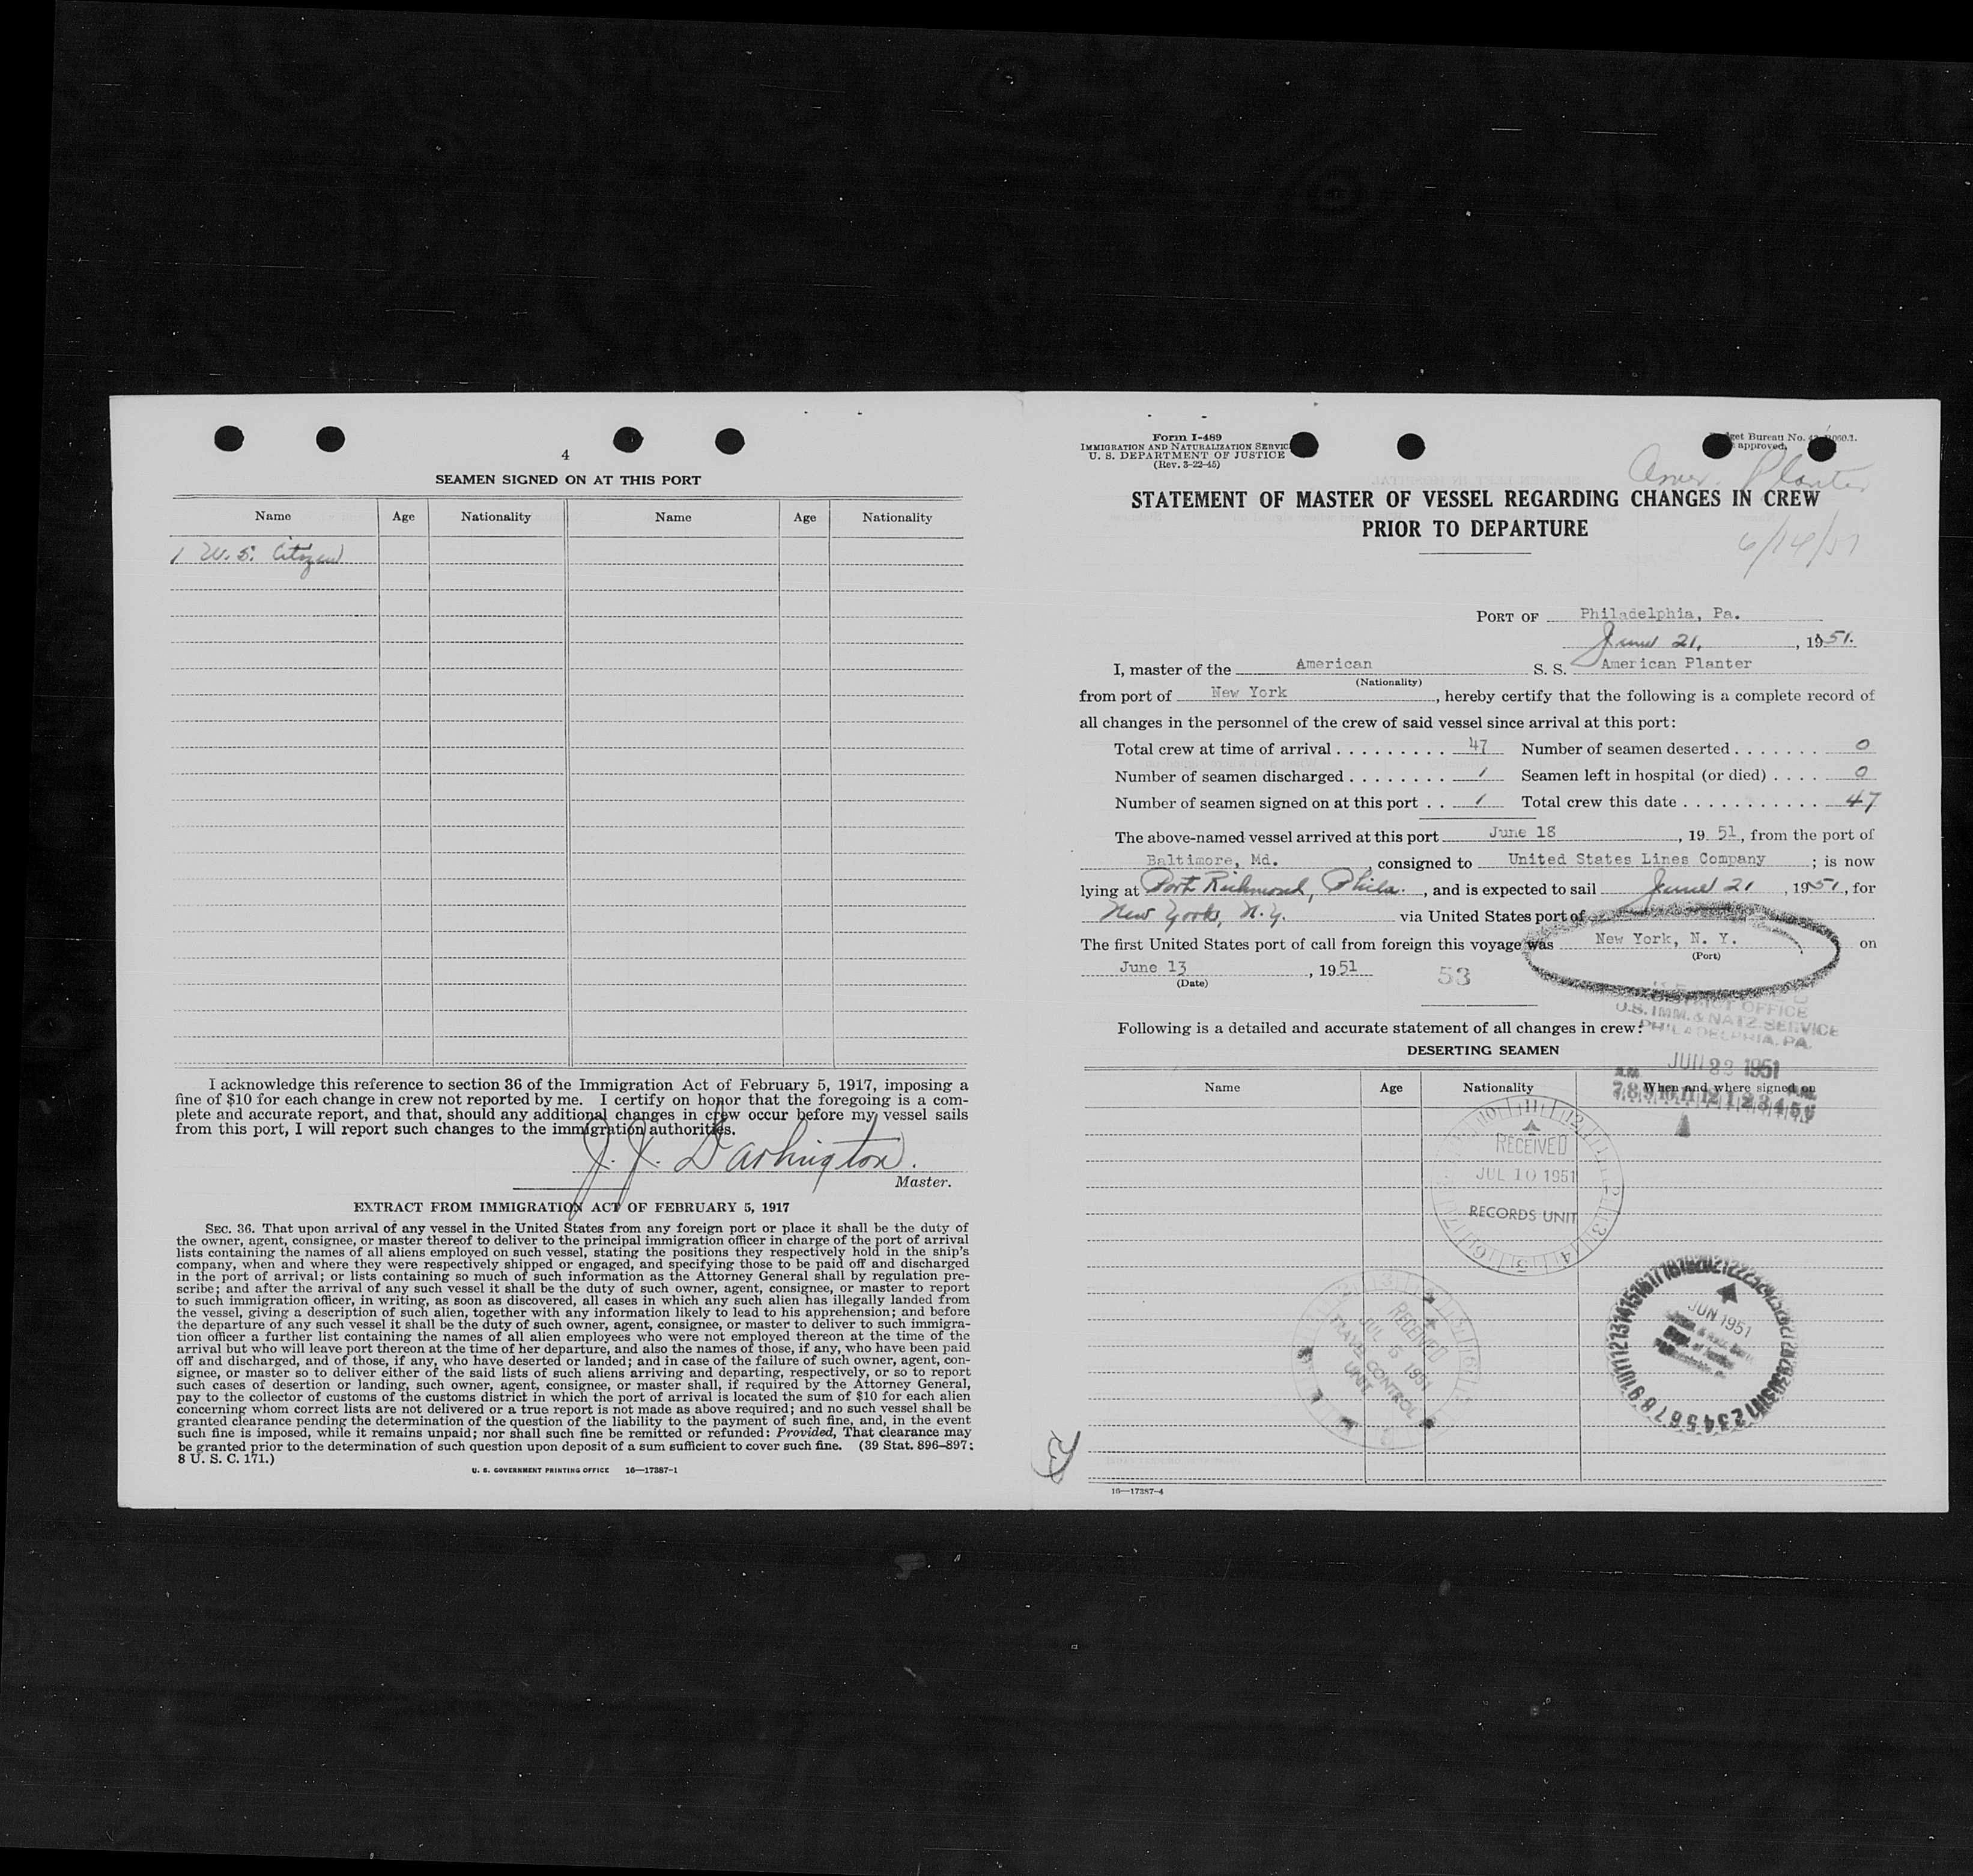 4
SEAMEN SIGNED ON AT THIS PORT
Name Age Nationality Name Age Nationality
1 U.S. Citizen
I acknowledge this reference to section 36 of the Immigration Act of February 5, 1917, imposing a
fine of $10 for each change in crew not reported by me. I certify on honor that the foregoing is a com-
plete and accurate report, and that, should any additional changes in crew occur before my vessel sails
from this port, I will report such changes to the immigration authorities.
J. J. Darlington.
Master.
EXTRACT FROM IMMIGRATION ACT OF FEBRUARY 5, 1917
SEC. 36. That upon arrival of any vessel in the United States from any foreign port or place it shall be the duty of
the owner, agent, consignee, or master thereof to deliver to the principal immigration officer in charge of the port of arrival
lists containing the names of all aliens employed on such vessel, stating the positions they respectively hold in the ship's
company, when and where they were respectively shipped or engaged, and specifying those to be paid off and discharged
in the port of arrival; or lists containing so much of such information as the Attorney General shall by regulation pre-
scribe; and after the arrival of any such vessel it shall be the duty of such owner, agent, consignee, or master to report
to such immigration officer, in writing, as soon as discovered, all cases in which any such alien has illegally landed from
the vessel, giving a description of such alien, together with any information likely to lead to his apprehension; and before
the departure of any such vessel it shall be the duty of such owner, agent, consignee, or master to deliver to such immigra-
tion officer a further list containing the names of all alien employees who were not employed thereon at the time of the
arrival but who will leave port thereon at the time of her departure, and also the names of those, if any, who have been paid
off and discharged, and of those, if any, who have deserted or landed; and in case of the failure of such owner, agent, con-
signee, or master so to deliver either of the said lists of such aliens arriving and departing, respectively, or so to report
such cases of desertion or landing, such owner, agent, consignee, or master shall, if required by the Attorney General,
pay to the collector of customs of the customs district in which the port of arrival is located the sum of $10 for each alien
concerning whom correct lists are not delivered or a true report is not made as above required; and no such vessel shall be
granted clearance pending the determination of the question of the liability to the payment of such fine, and, in the event
such fine is imposed, while it remains unpaid; nor shall such fine be remitted or refunded: Provided, That clearance may
be granted prior to the determination of such question upon deposit of a sum sufficient to cover such fine. (39 Stat. 896–897;
8 U. S. C. 171.)
U. S. GOVERNMENT PRINTING OFFICE 16—17387-1
Form I-489
IMMIGRATION AND NATURALIZATION SERVIC
U. S. DEPARTMENT OF JUSTICE
(Rev. 3-22-45)
get Bureau No.
approved.
Amer. Planter
STATEMENT OF MASTER OF VESSEL REGARDING CHANGES IN CREW
PRIOR TO DEPARTURE
6/14/51
PORT OF Philadelphia, Pa.
June 21, , 1951.
I, master of the American S. S. American Planter
(Nationality)
from port of New York, hereby certify that the following is a complete record of
all changes in the personnel of the crew of said vessel since arrival at this port:
Total crew at time of arrival . . . . . . . . . 47 Number of seamen deserted . . . . . . . 0
Number of seamen discharged . . . . . . . . 1 Seamen left in hospital (or died) . . . . 0
Number of seamen signed on at this port . . 1 Total crew this date . . . . . . . . . . . 47
The above-named vessel arrived at this port June 18, 19 51, from the port of
Baltimore, Md., consigned to United States Lines Company; is now
lying at Port Richmond, Phila., and is expected to sail June 21, 1951, for
New York, N.Y. via United States port of
The first United States port of call from foreign this voyage was New York, N. Y. on
(Port)
June 13, 1951
(Date)
53
DISTRICT OFFICE
U.S. IMM. & NATZ. SERVICE
PHILADELPHIA, PA.
Following is a detailed and accurate statement of all changes in crew:
DESERTING SEAMEN
JUN 22 1951
Name Age Nationality When and where signed on
7 8 9 10 11 12 1 2 3 4 5 6
RECEIVED
JUL 10 1951
RECORDS UNIT
RECEIVED
JUL 5 1951
MAIL CONTROL
UNIT
JUN 1951
16—17387-4